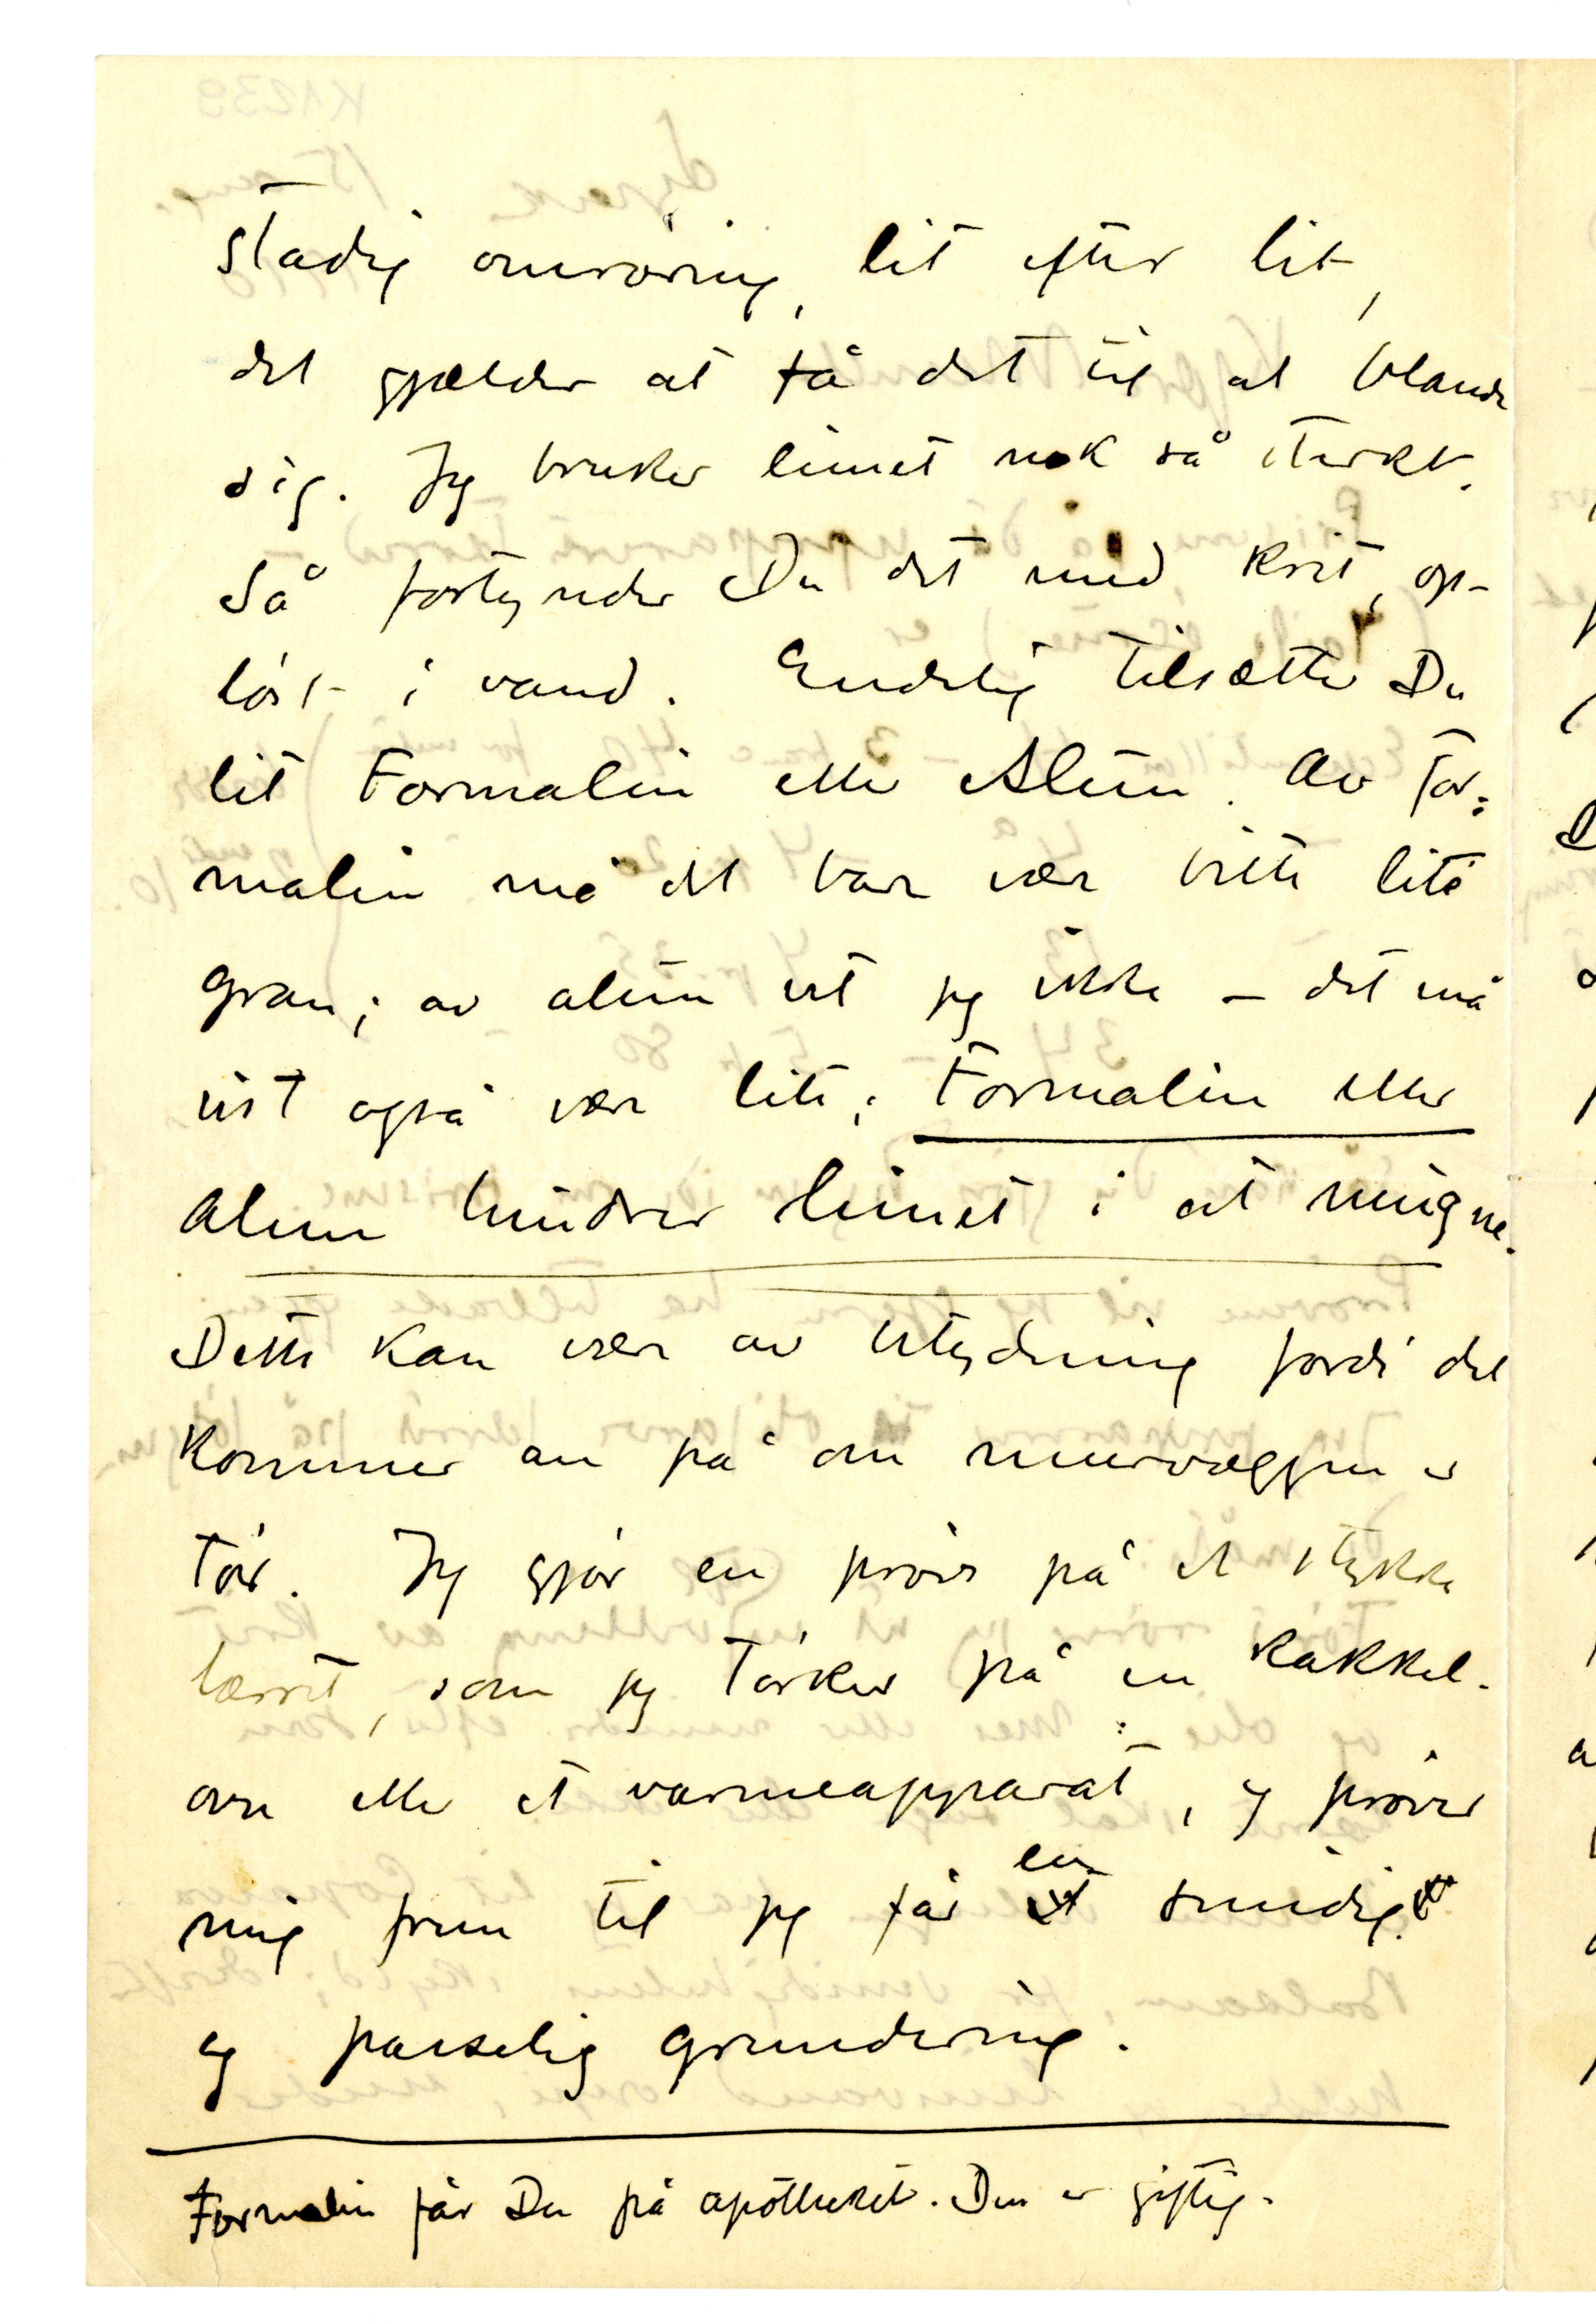 stadig omröring, lit efter lit,
det gjælder at få det til at blande
sig. Jeg bruker limet nok så sterkt.
Så fortynder Du det med krit, op-
löst i vand. Endelig tilsætter Du
lit Formalin eller Alun. Av For-
malin må det bare være bitte lite
gran; av alun vet jeg ikke – det må
vist også være lite; Formalin eller
Alun hindrer limet i at mugne.
Dette kan være av betydning fordi det
kommer an på om murvæggen er
tör. Jeg gjör en pröve på et stykke
lærret, som jeg törker på en kakkel-
ovn eller et varmeapparat, og pröver
mig frem til jeg får en smidig
og passelig grundering.
Formalin får Du på apotheket. Den er giftig.